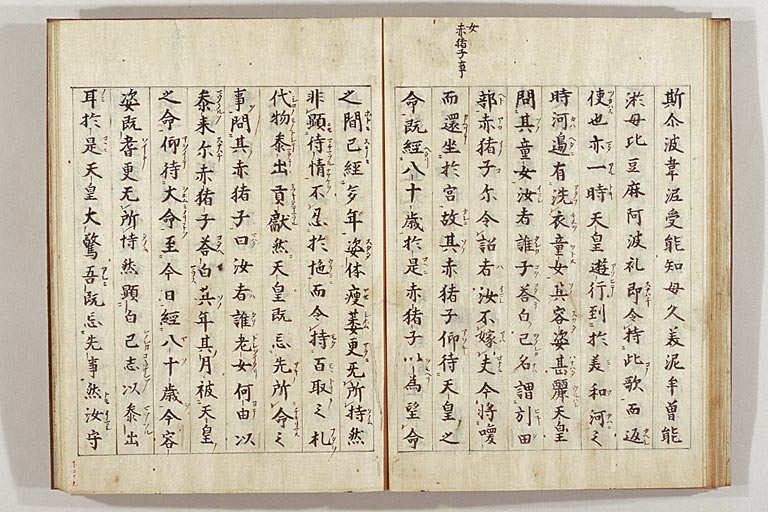 女
赤猪子事
斯尒波韋泥受能知母久美泥牟曽能
淤母比豆麻阿波礼即令持此歌而返
使也亦一時天皇遊行到於美和河之
時河邊有洗衣童女其容姿甚麗天皇
問其童女汝者誰子荅白己名謂引田
部赤猪子尓令詔者汝不嫁夫今将喚
而還坐於宮故其赤猪子仰待天皇之
命既經八十歳於是赤猪子以為望命
之間已經多年姿体瘦萎更无所恃然
非顕待情不忍於悒而令持百取之札
代物叅出貢獻然天皇既忘先所命之
事問其赤猪子曰汝者誰老女何由以
叅来尓赤猪子荅白其年其月被天皇
之命仰待大命至今日經八十歳今容
姿既耆更无所恃然顕白己志以叅出
耳於是天皇大驚吾既忘先事然汝守